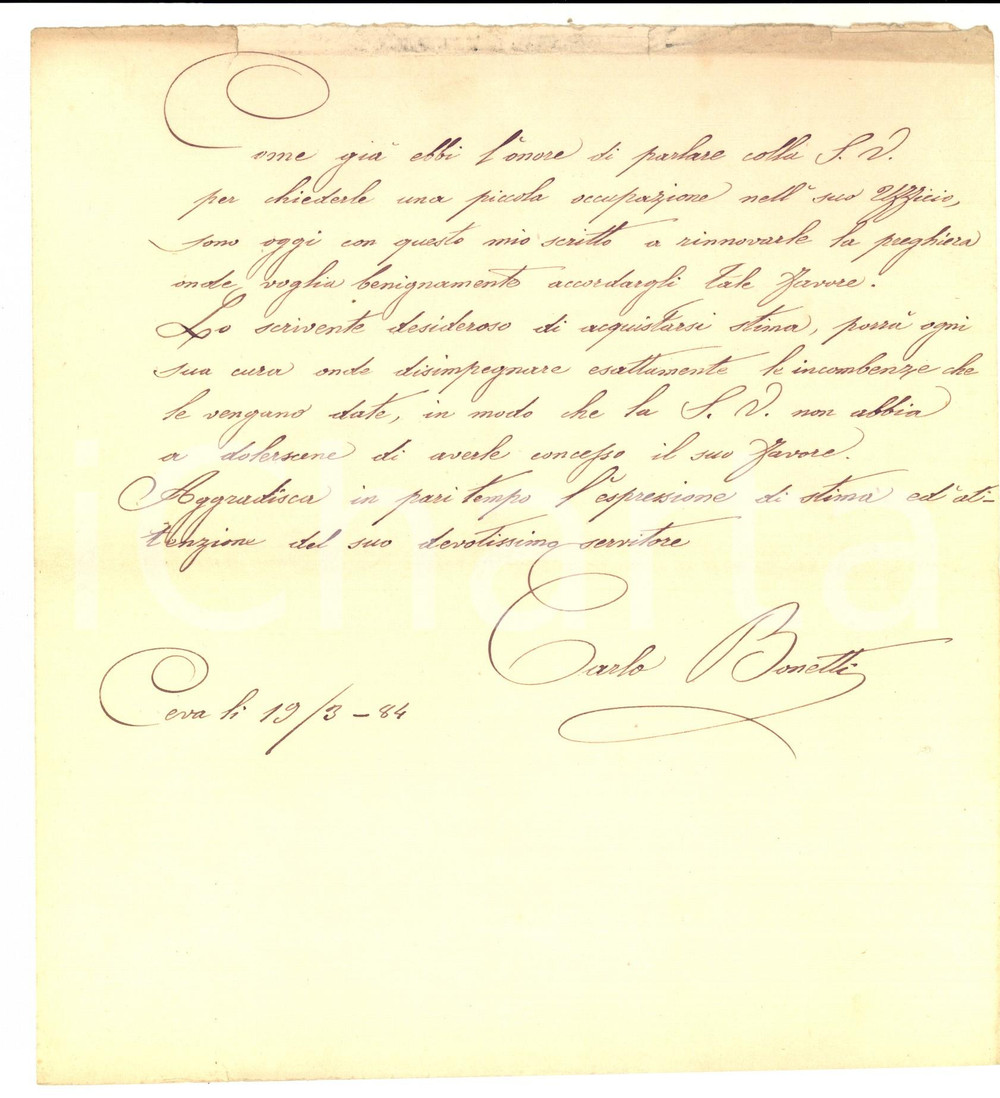 Come già ebbi l'onore di parlare colla S. V.
per chiederle una piccola occupazione nell' suo Uffizio,
sono oggi con questo mio scritto a rinnovarle la preghiera
onde voglia benignamente accordargli tale favore.
Lo scrivente desideroso di acquistarsi stima, porrà ogni
sua cura onde disimpegnare esattamente le incombenze che
le vengano date, in modo che la S. V. non abbia
a dolersene di averle concesso il suo favore.
Aggradisca in pari tempo l'espressione di stima ed' at-
tenzione del suo devotissimo servitore
Carlo Bonetti
Ceva li 19/3-84
iCharta